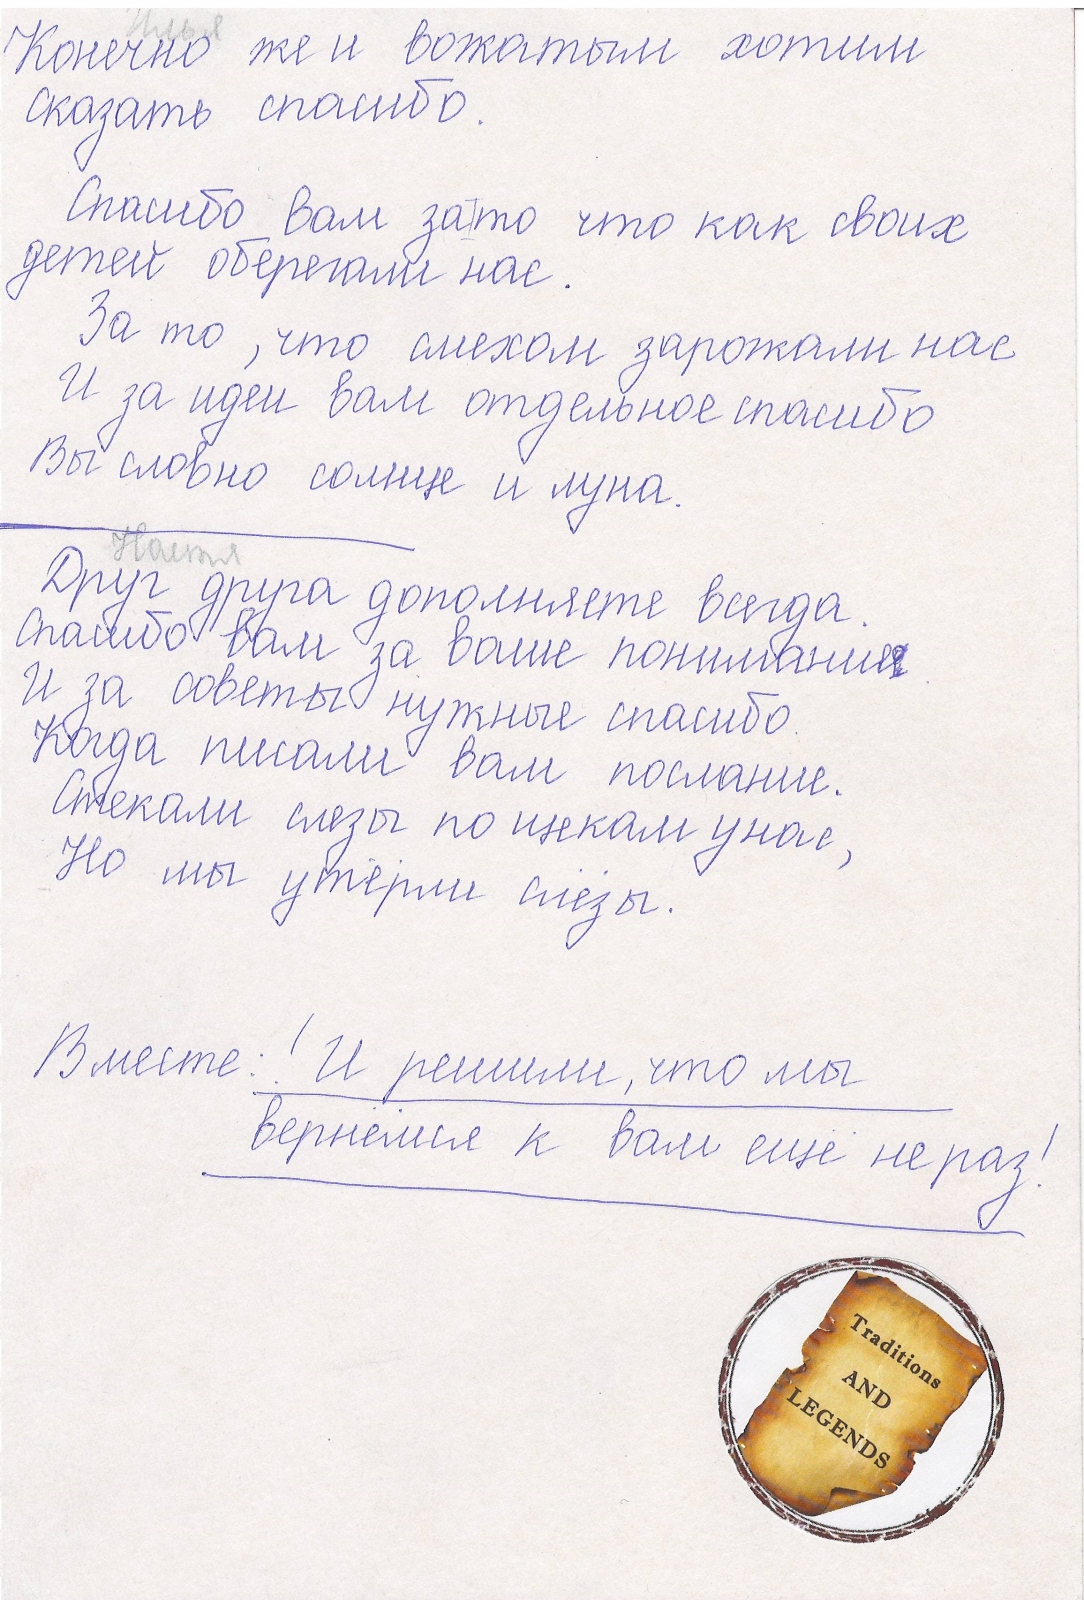 Илья
Конечно же и вожатым хотим
сказать спасибо.
Спасибо вам за то что как своих
детей оберегали нас.
За то, что смехом зарожали нас
И за идеи вам отдельное спасибо
Вы словно солнце и луна.
Настя
Друг друга дополняете всегда.
Спасибо вам за ваше понимание
И за советы нужные спасибо.
Когда писали вам послание.
Стекали слезы по щекам у нас,
Но мы утёрли слёзы.
Вместе: ! И решили, что мы
вернёмся к вам ещё не раз!
Traditions
AND
LEGENDS